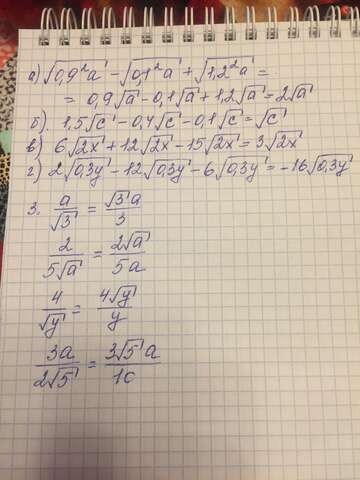 а) √(0,9²a) - √(0,1²a) + √(1,2²a) =
= 0,9√a - 0,1√a + 1,2√a = 2√a
б). 1,5√c - 0,4√c - 0,1√c = √c
в) 6√(2x) + 12√(2x) - 15√(2x) = 3√(2x)
г) 2√(0,3y) - 12√(0,3y) - 6√(0,3y) = -16√(0,3y)
3. a/√3 = √3a/3
2/(5√a) = 2√a/(5a)
4/√y = 4√y/y
3a/(2√5) = 3√5a/10